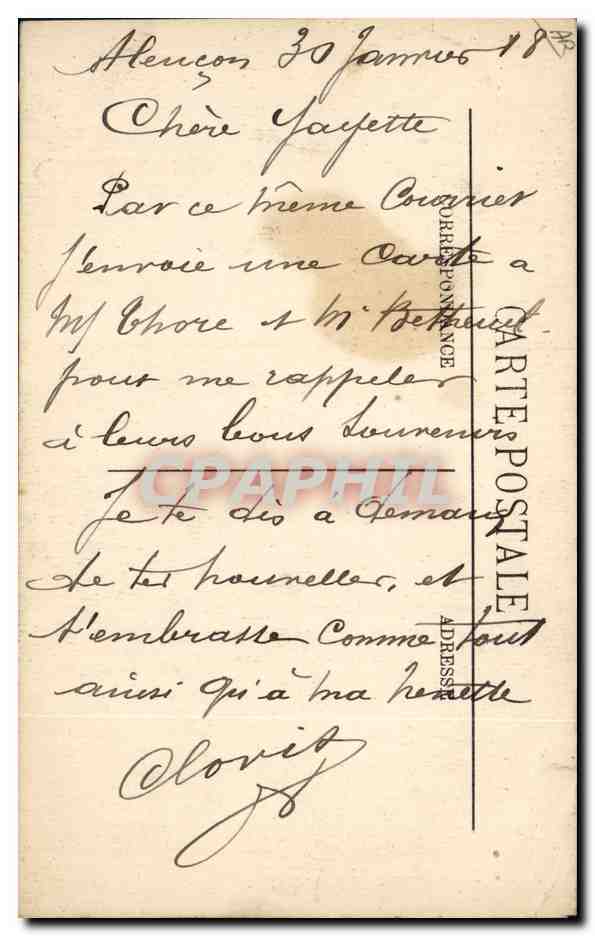 Alençon 30 Janvier 18
AR
Chère Fayette
Par ce même Courrier
j'envoie une Carte a
Mr Thore et Mr Betheuil
pour me rappeler
à leurs bons Souvenirs
Je te dis à demain
de tes nouvelles, et
t'embrasse Comme tout
ainsi qu'à ma
Clovis
CORRESPONDANCE
CARTE POSTALE
ADRESSE
CPAPHIL